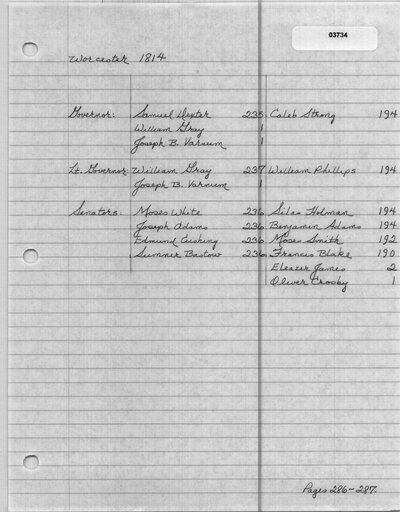 03734
Worcester 1814
Governor: Samuel Dexter 235 Caleb Strong 194
William Gray 1
Joseph B. Varnum 1
Lt. Governor: William Gray 237 William Phillips 194
Joseph B. Varnum 1
Senators: Moses White 236 Silas Holman 194
Joseph Adams 236 Benjamin Adams 194
Edmund Cushing 236 Moses Smith 192
Sumner Bastow 236 Francis Blake 190
Eleazer James 2
Oliver Crosby 1
Pages 286-287.